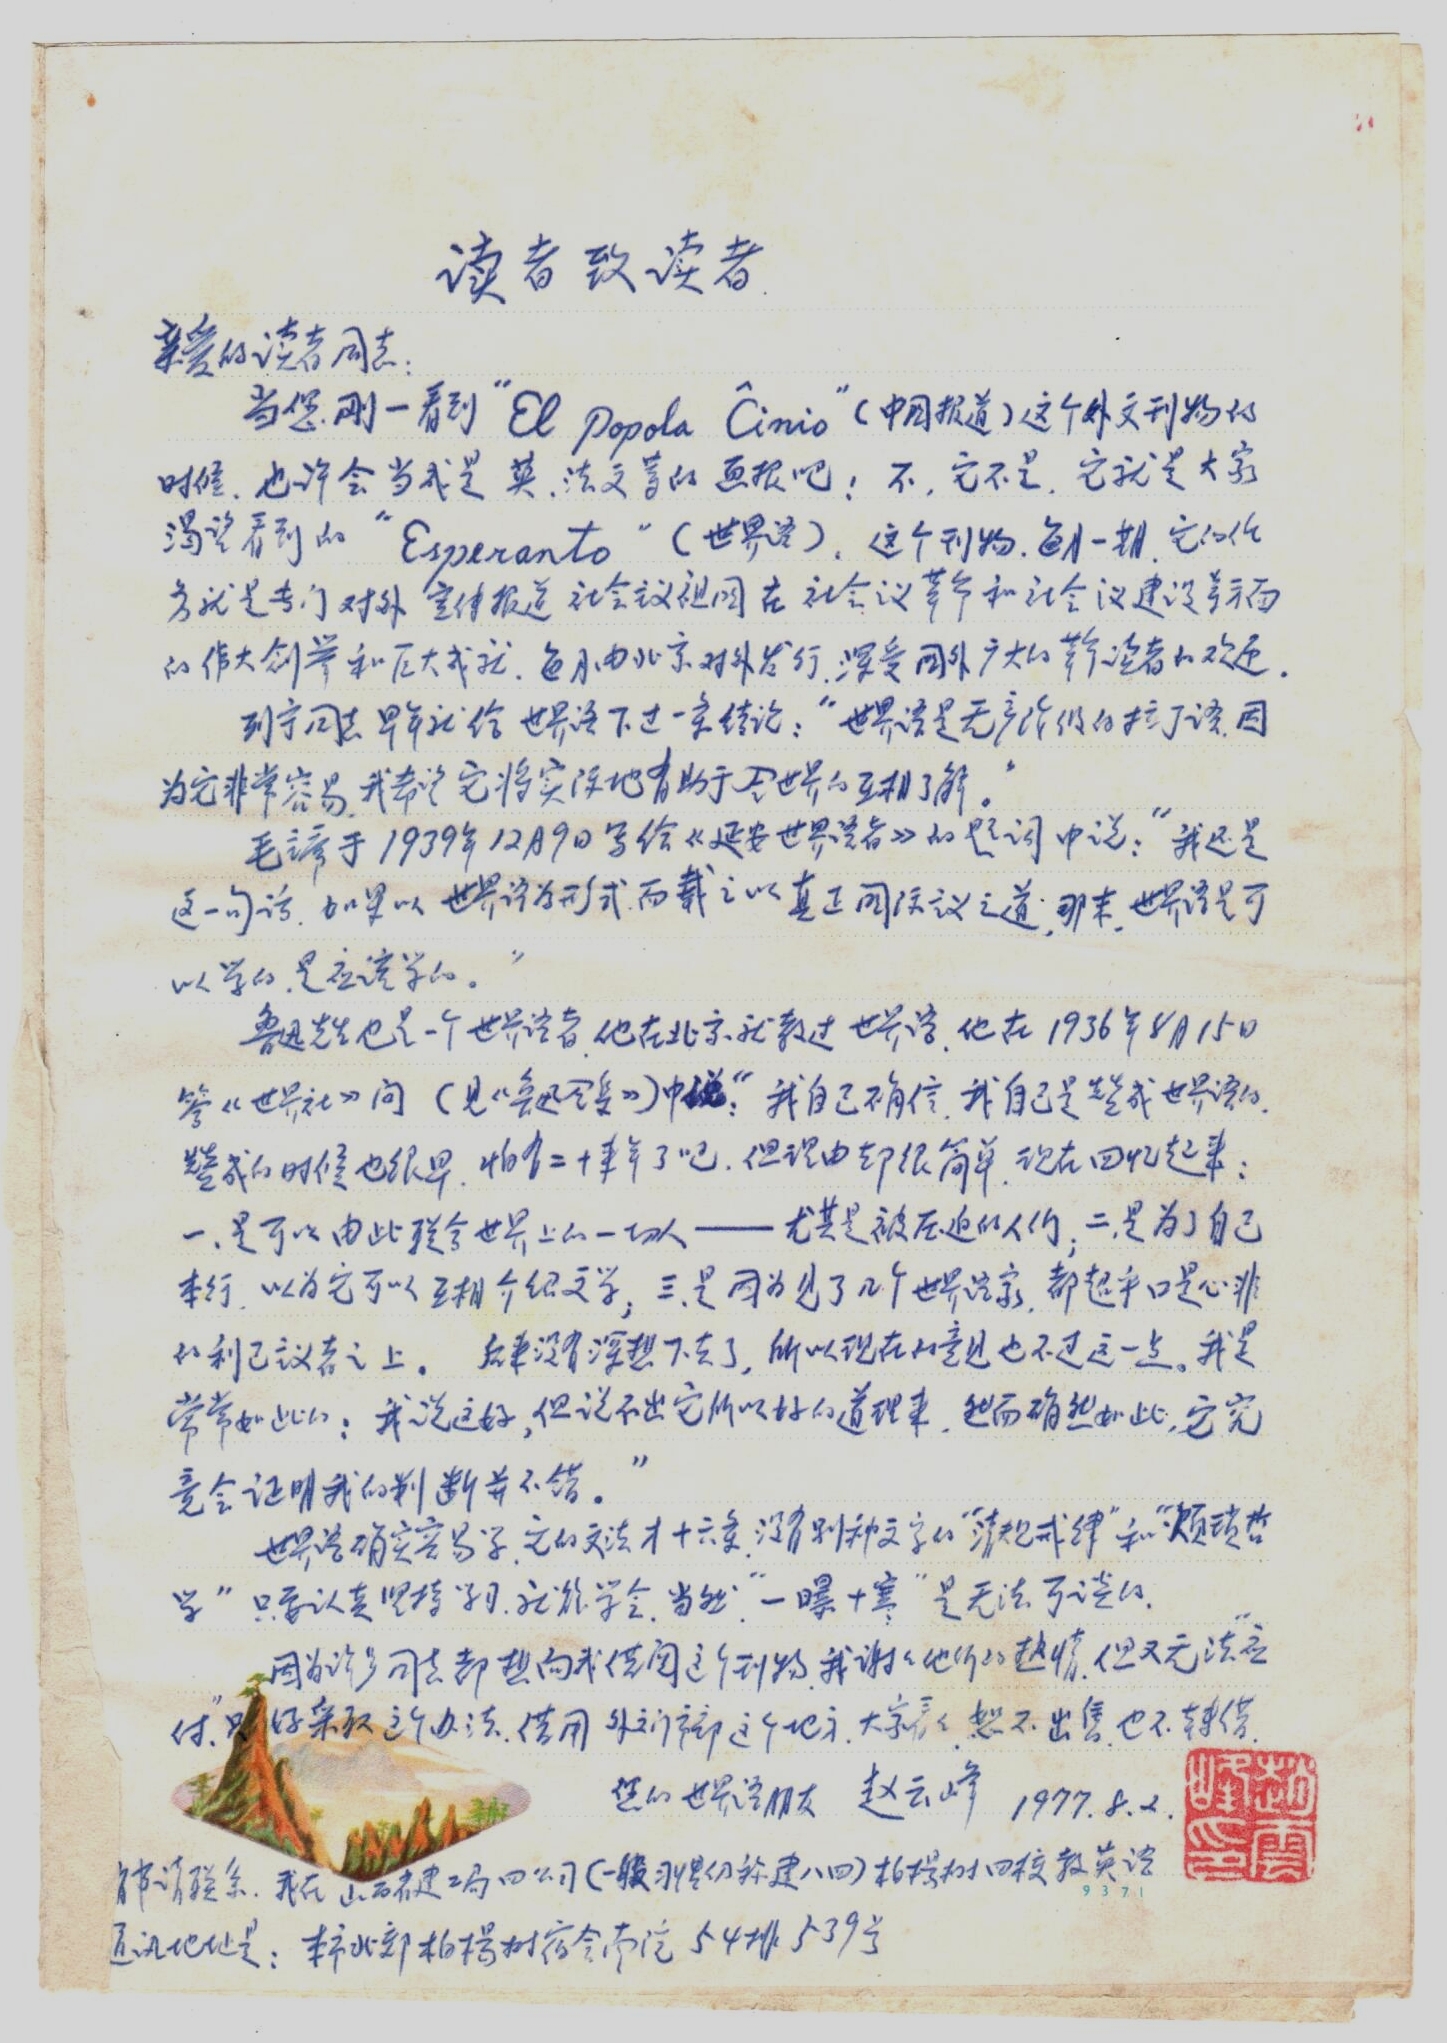 读者致读者
亲爱的读者同志：
当您刚一看到“El Popola Ĉinio”（中国报道）这个外文刊物的
时候，也许会当成是英、法文等的画报吧！不，它不是，它就是大家
渴望看到的“Esperanto”（世界语）。这个刊物，每月一期，它的任
务就是专门对外宣传报道社会议祖国在社会议革命和社会议建设等方面
的伟大创举和巨大成就，每月由北京对外发行，深受国外广大的革命读者的欢迎。
列宁同志早年就给世界语下过一条结论：“世界语是无产阶级的拉丁语，因
为它非常容易，我希望它将实际地有助于全世界的互相了解。”
毛主席于1939年12月9日写给《延安世界语者》的题词中说：“我还是
这一句话，如果以世界语为形式，而载之以真正国际议之道，那末，世界语是可
以学的，是应该学的。”
鲁迅先生也是一个世界语者，他在北京就教过世界语，他在1936年8月15日
答《世界社》问（见《鲁迅全集》）中说：“我自己确信，我自己是赞成世界语的。
赞成的时候也很早，怕有二十来年了吧，但理由却很简单，现在回忆起来：
一、是可以由此联合世界上的一切人——尤其是被压迫的人们；二、是为了自己
本行，以为它可以互相介绍文学；三、是因为见了几个世界语家，都超乎口是心非
的利己议者之上。后来没有深想下去了，所以现在的意见也不过这一点。我是
常常如此的：我说这好，但说不出它所以好的道理来，然而确然如此，它究
竟会证明我的判断并不错。”
世界语确实容易学，它的文法才十六条，没有别种文字的“清规戒律”和“烦琐哲
学”只要认真坚持学习，就能学会，当然，“一曝十寒”是无法可谈的。
因为许多同志都想向我借阅这个刊物，我谢谢他们的热情，但又无法“应
付”，只好采取这个办法，借用外文门市部这个地方，大家看看，恕不出售，也不转借。
您的世界语朋友 赵云峰 1977.8.2.
赵云峰印
请联系，我在山西省建工局四公司（一般习惯仍称建八四）柏杨树小四校教英语
9371
通讯地址是：本市北郊柏杨树宿舍南院54排539号